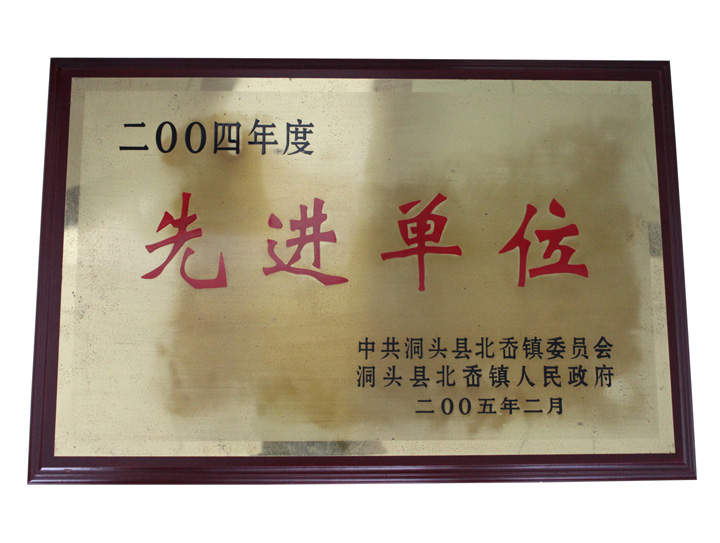 二〇〇四年度
先进单位
中共洞头县北岙镇委员会
洞头县北岙镇人民政府
二〇〇五年二月